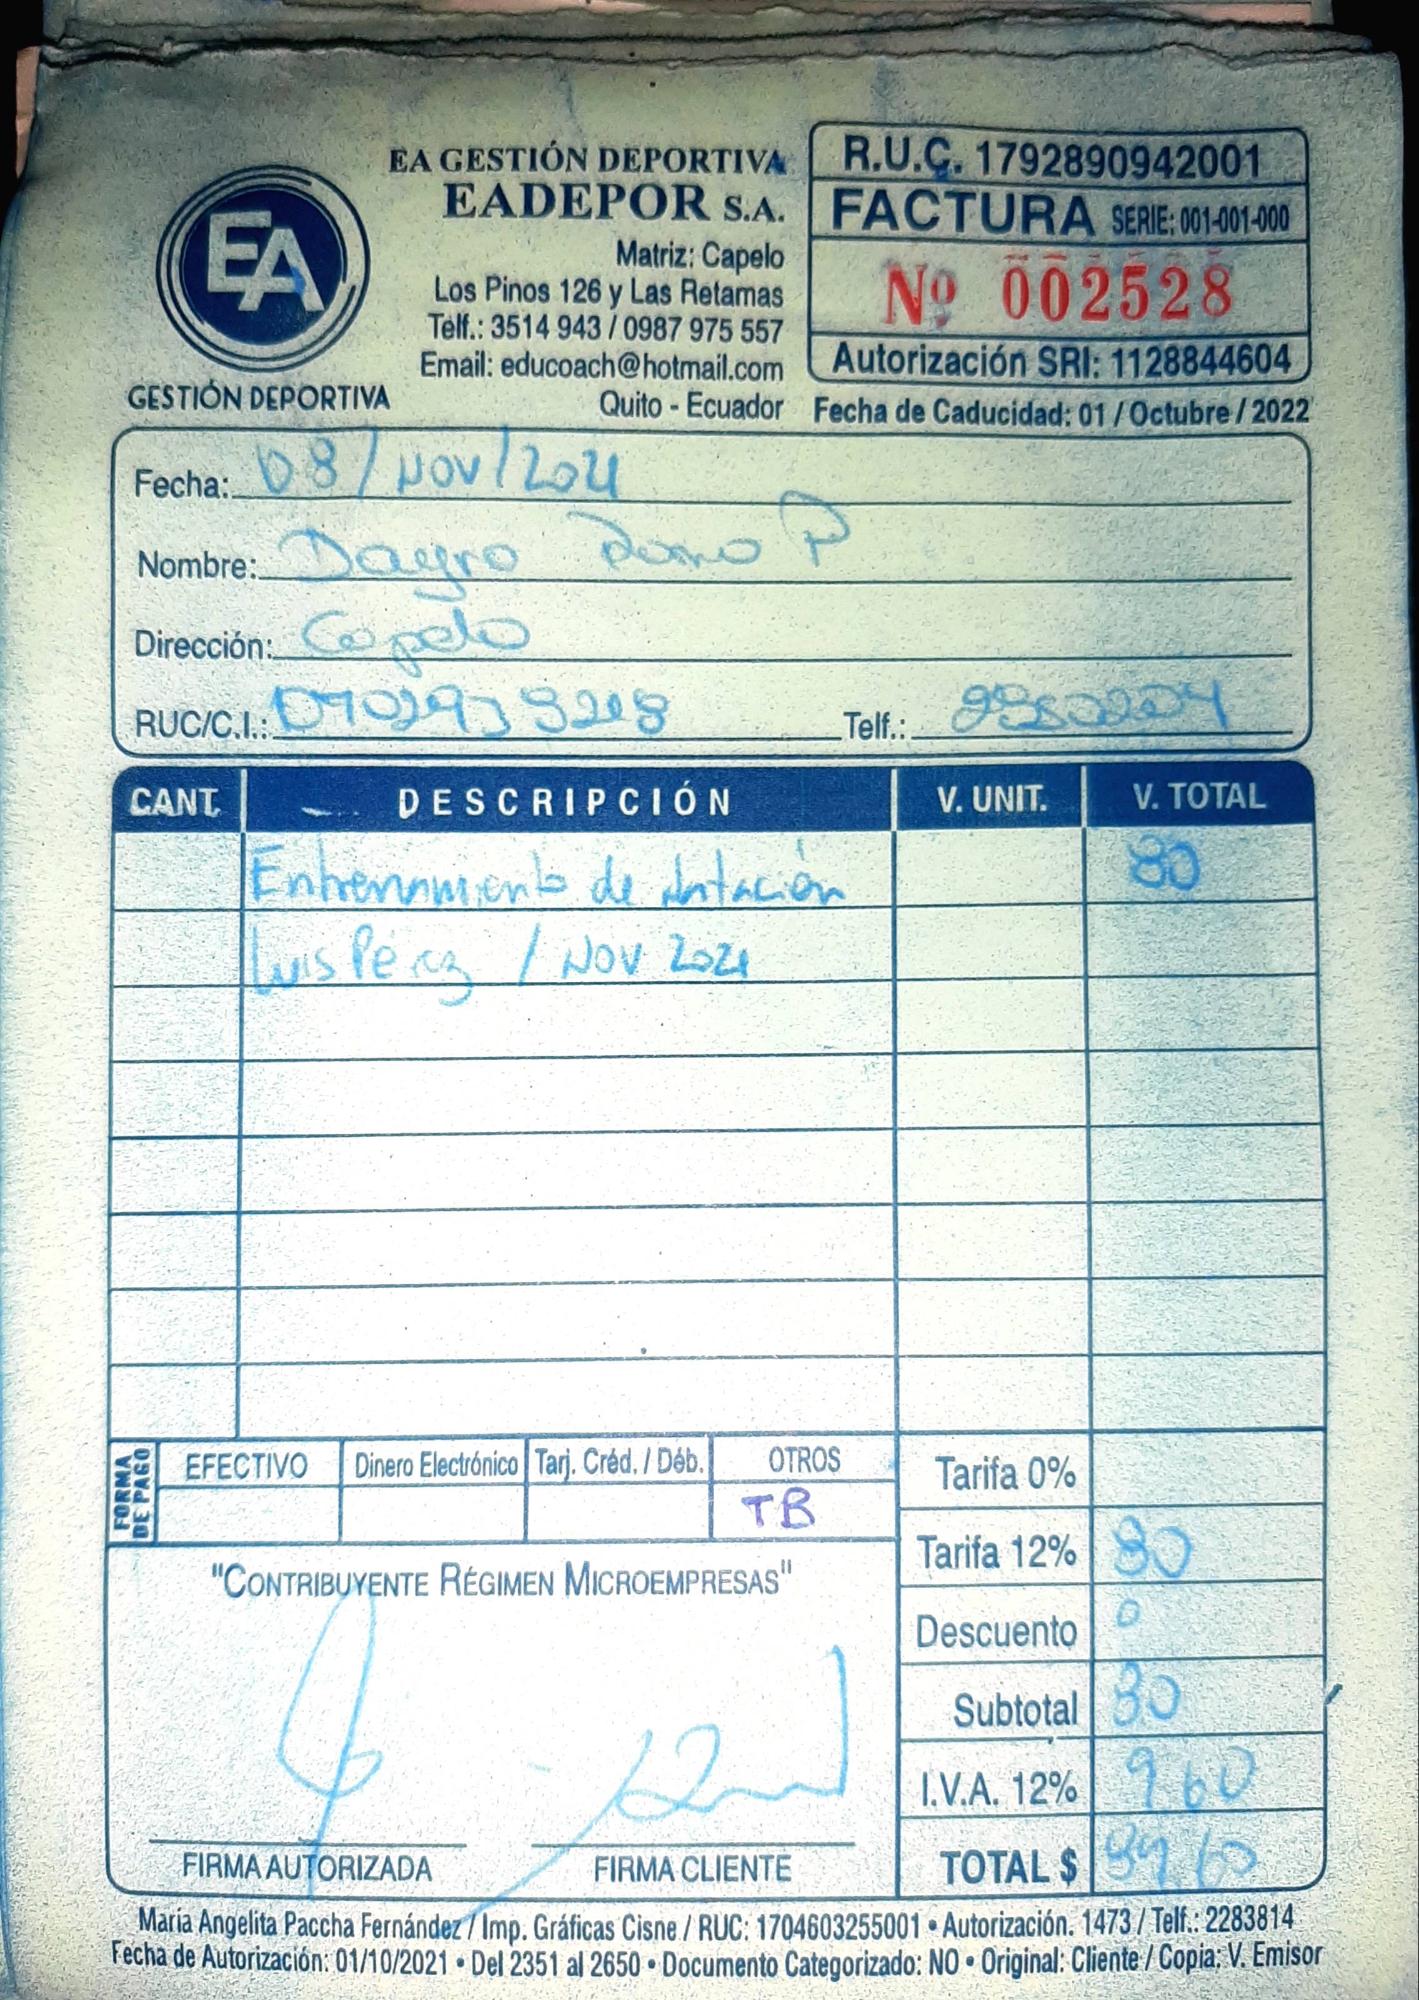 EA GESTIÓN DEPORTIVA
EADEPOR S.A.
Matriz: Capelo
Los Pinos 126 y Las Retamas
Telf.: 3514 943 / 0987 975 557
Email: educoach@hotmail.com
Quito - Ecuador
EA
GESTIÓN DEPORTIVA
R.U.C. 1792890942001
FACTURA SERIE: 001-001-000
Nº 002528
Autorización SRI: 1128844604
Fecha de Caducidad: 01 / Octubre / 2022
Fecha: 08/NOV/2021
Nombre: Dagro P
Dirección: Capelo
RUC/C.I.:
Telf.:
CANT. DESCRIPCIÓN V. UNIT. V. TOTAL
Entrenamiento de Natación 80
Luis Pérez / NOV 2021
FORMA DE PAGO
EFECTIVO Dinero Electrónico Tarj. Créd. / Déb. OTROS
TB
Tarifa 0%
Tarifa 12% 80
Descuento 0
Subtotal 80
I.V.A. 12% 9.60
TOTAL $ 89.60
"CONTRIBUYENTE RÉGIMEN MICROEMPRESAS"
FIRMA AUTORIZADA FIRMA CLIENTE
María Angelita Paccha Fernández / Imp. Gráficas Cisne / RUC: 1704603255001 • Autorización. 1473 / Telf.: 2283814
Fecha de Autorización: 01/10/2021 • Del 2351 al 2650 • Documento Categorizado: NO • Original: Cliente / Copia: V. Emisor